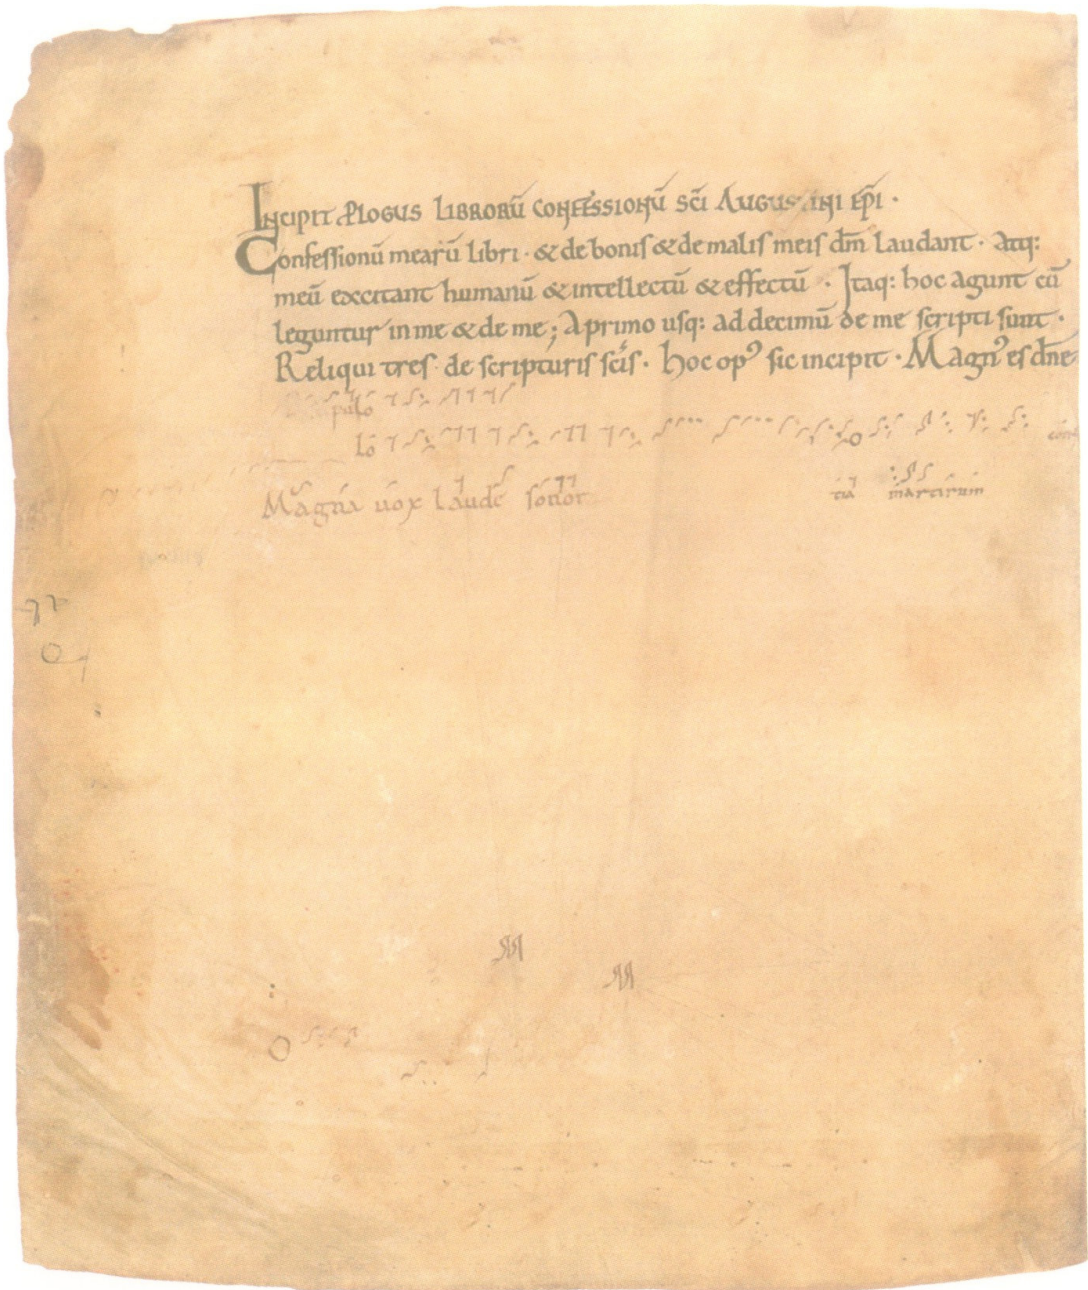 INCIPIT PLOGUS LIBRORŪ CONFESSIONŪ SC̄I AUGUSTINI EP̄I ·
Confessionū mearū libri · & de bonis & de malis meis dm̄ laudant · atq:
meū excitant humanū & intellectū & effectū · Itaq: hoc agunt cū
leguntur in me & de me ; A primo usq: ad decimū de me scripti sunt ·
Reliqui tres de scripturis sc̄is · hoc opꝰ sic incipit · Magnꝰ es dn̄e
Magna uox laude sonor
tia martirum